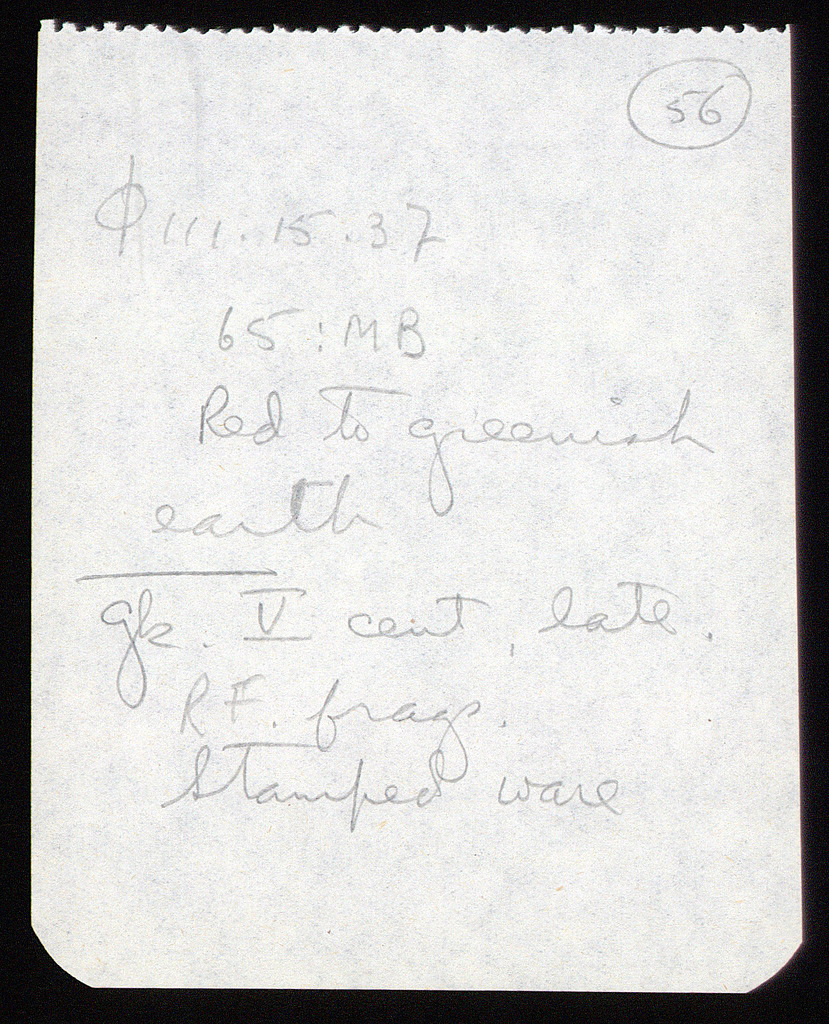 56
Φ 111.15.37
65 : MB
Red to greenish
earth
gk. V cent, late.
RF. frags.
Stamped ware